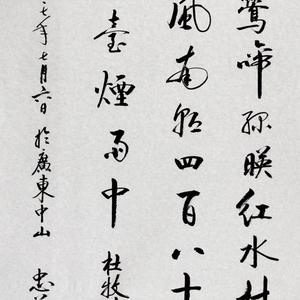 鶯啼綠暎紅水村
風南朝四百八十
臺煙雨中 杜牧
七年七月六日於廣東中山 忠